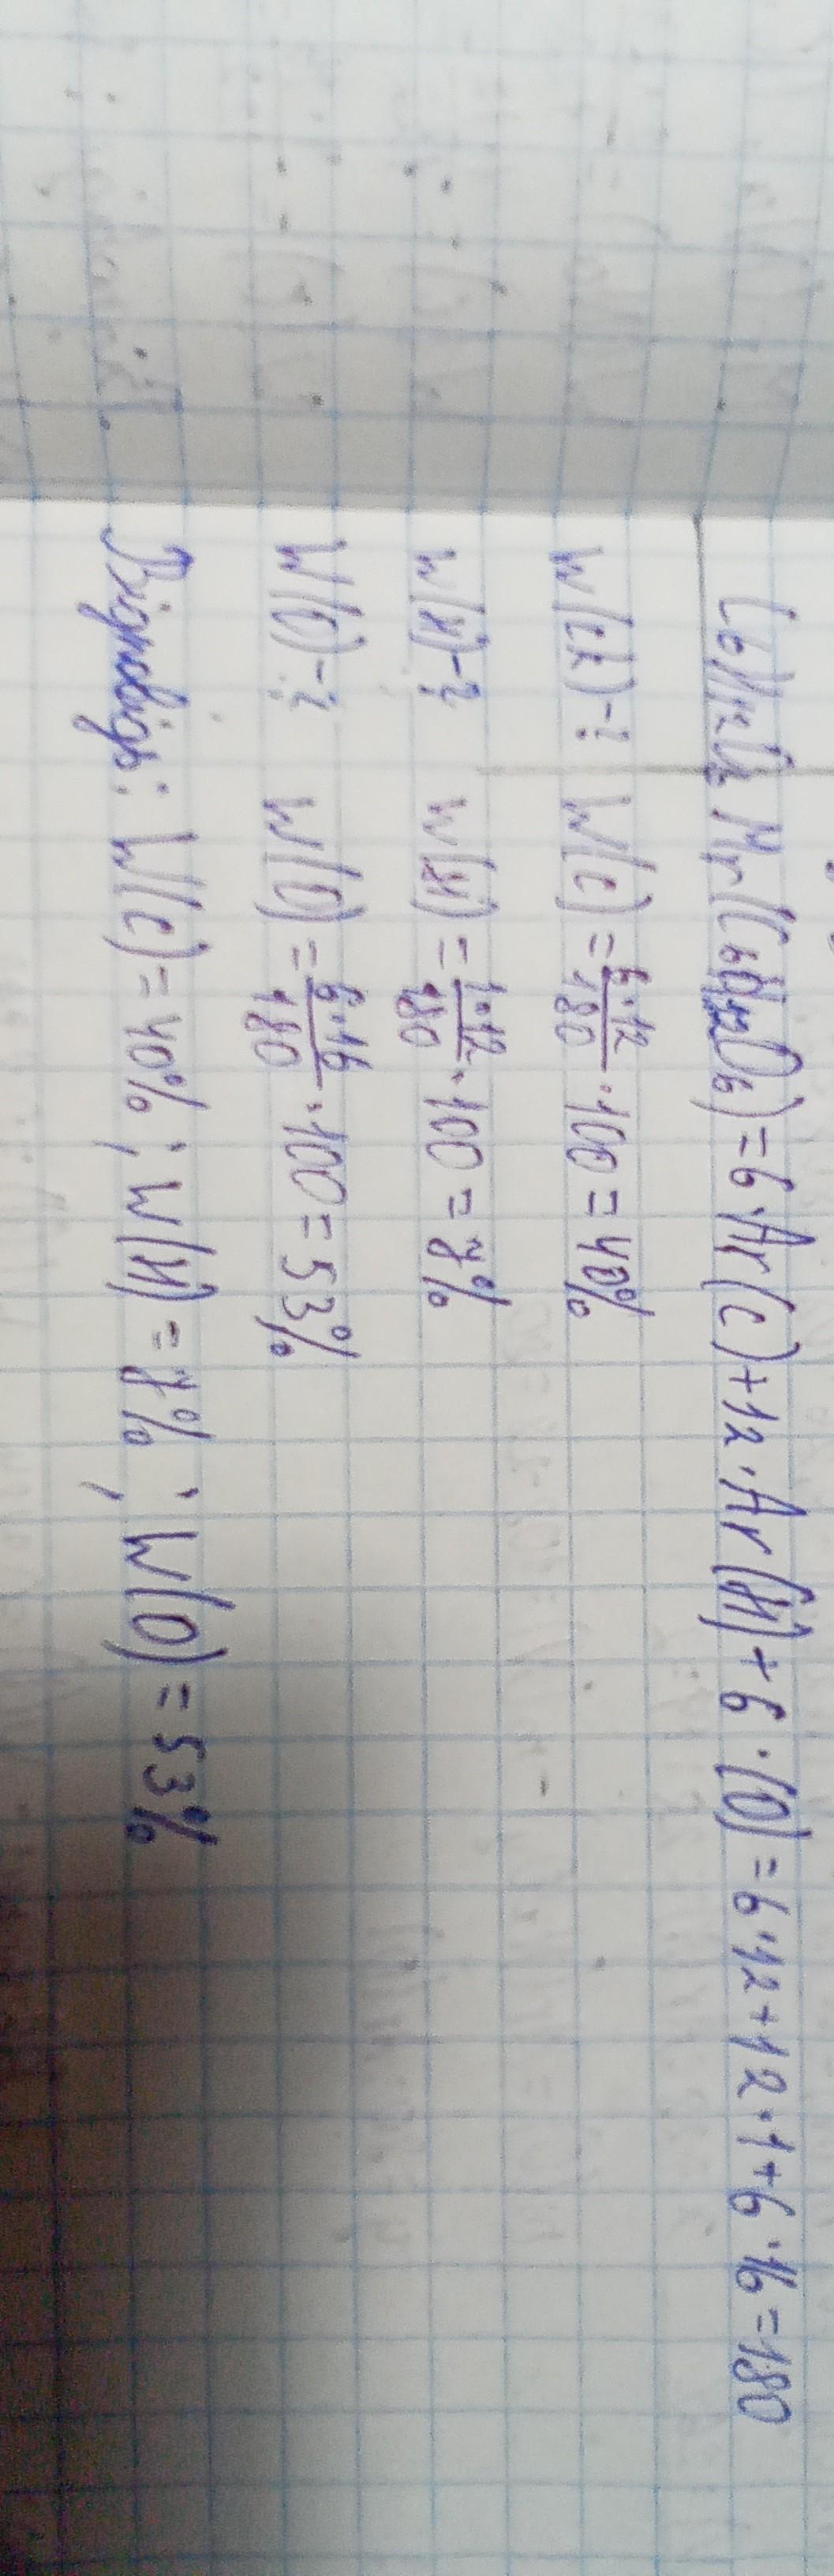 C6H12O6 Mr(C6H12O6)=6·Ar(C)+12·Ar(H)+6·(O)=6·12+12·1+6·16=180
W(C)-? W(C)=6·12/180·100=40%
W(H)-? W(H)=1·12/180·100=7%
W(O)-? W(O)=6·16/180·100=53%
Відповідь: W(C)=40%; W(H)=7%; W(O)=53%